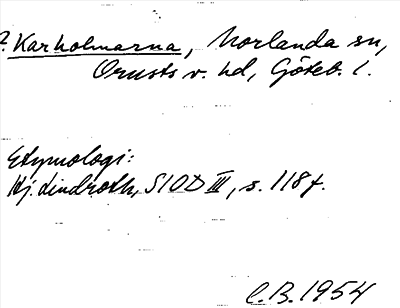 ? Karholmarna, Morlanda sn,
Orusts v. hd, Göteb. l.
Etymologi:
Hj. Lindroth, SIOD III, s. 118 f.
C.B. 1954